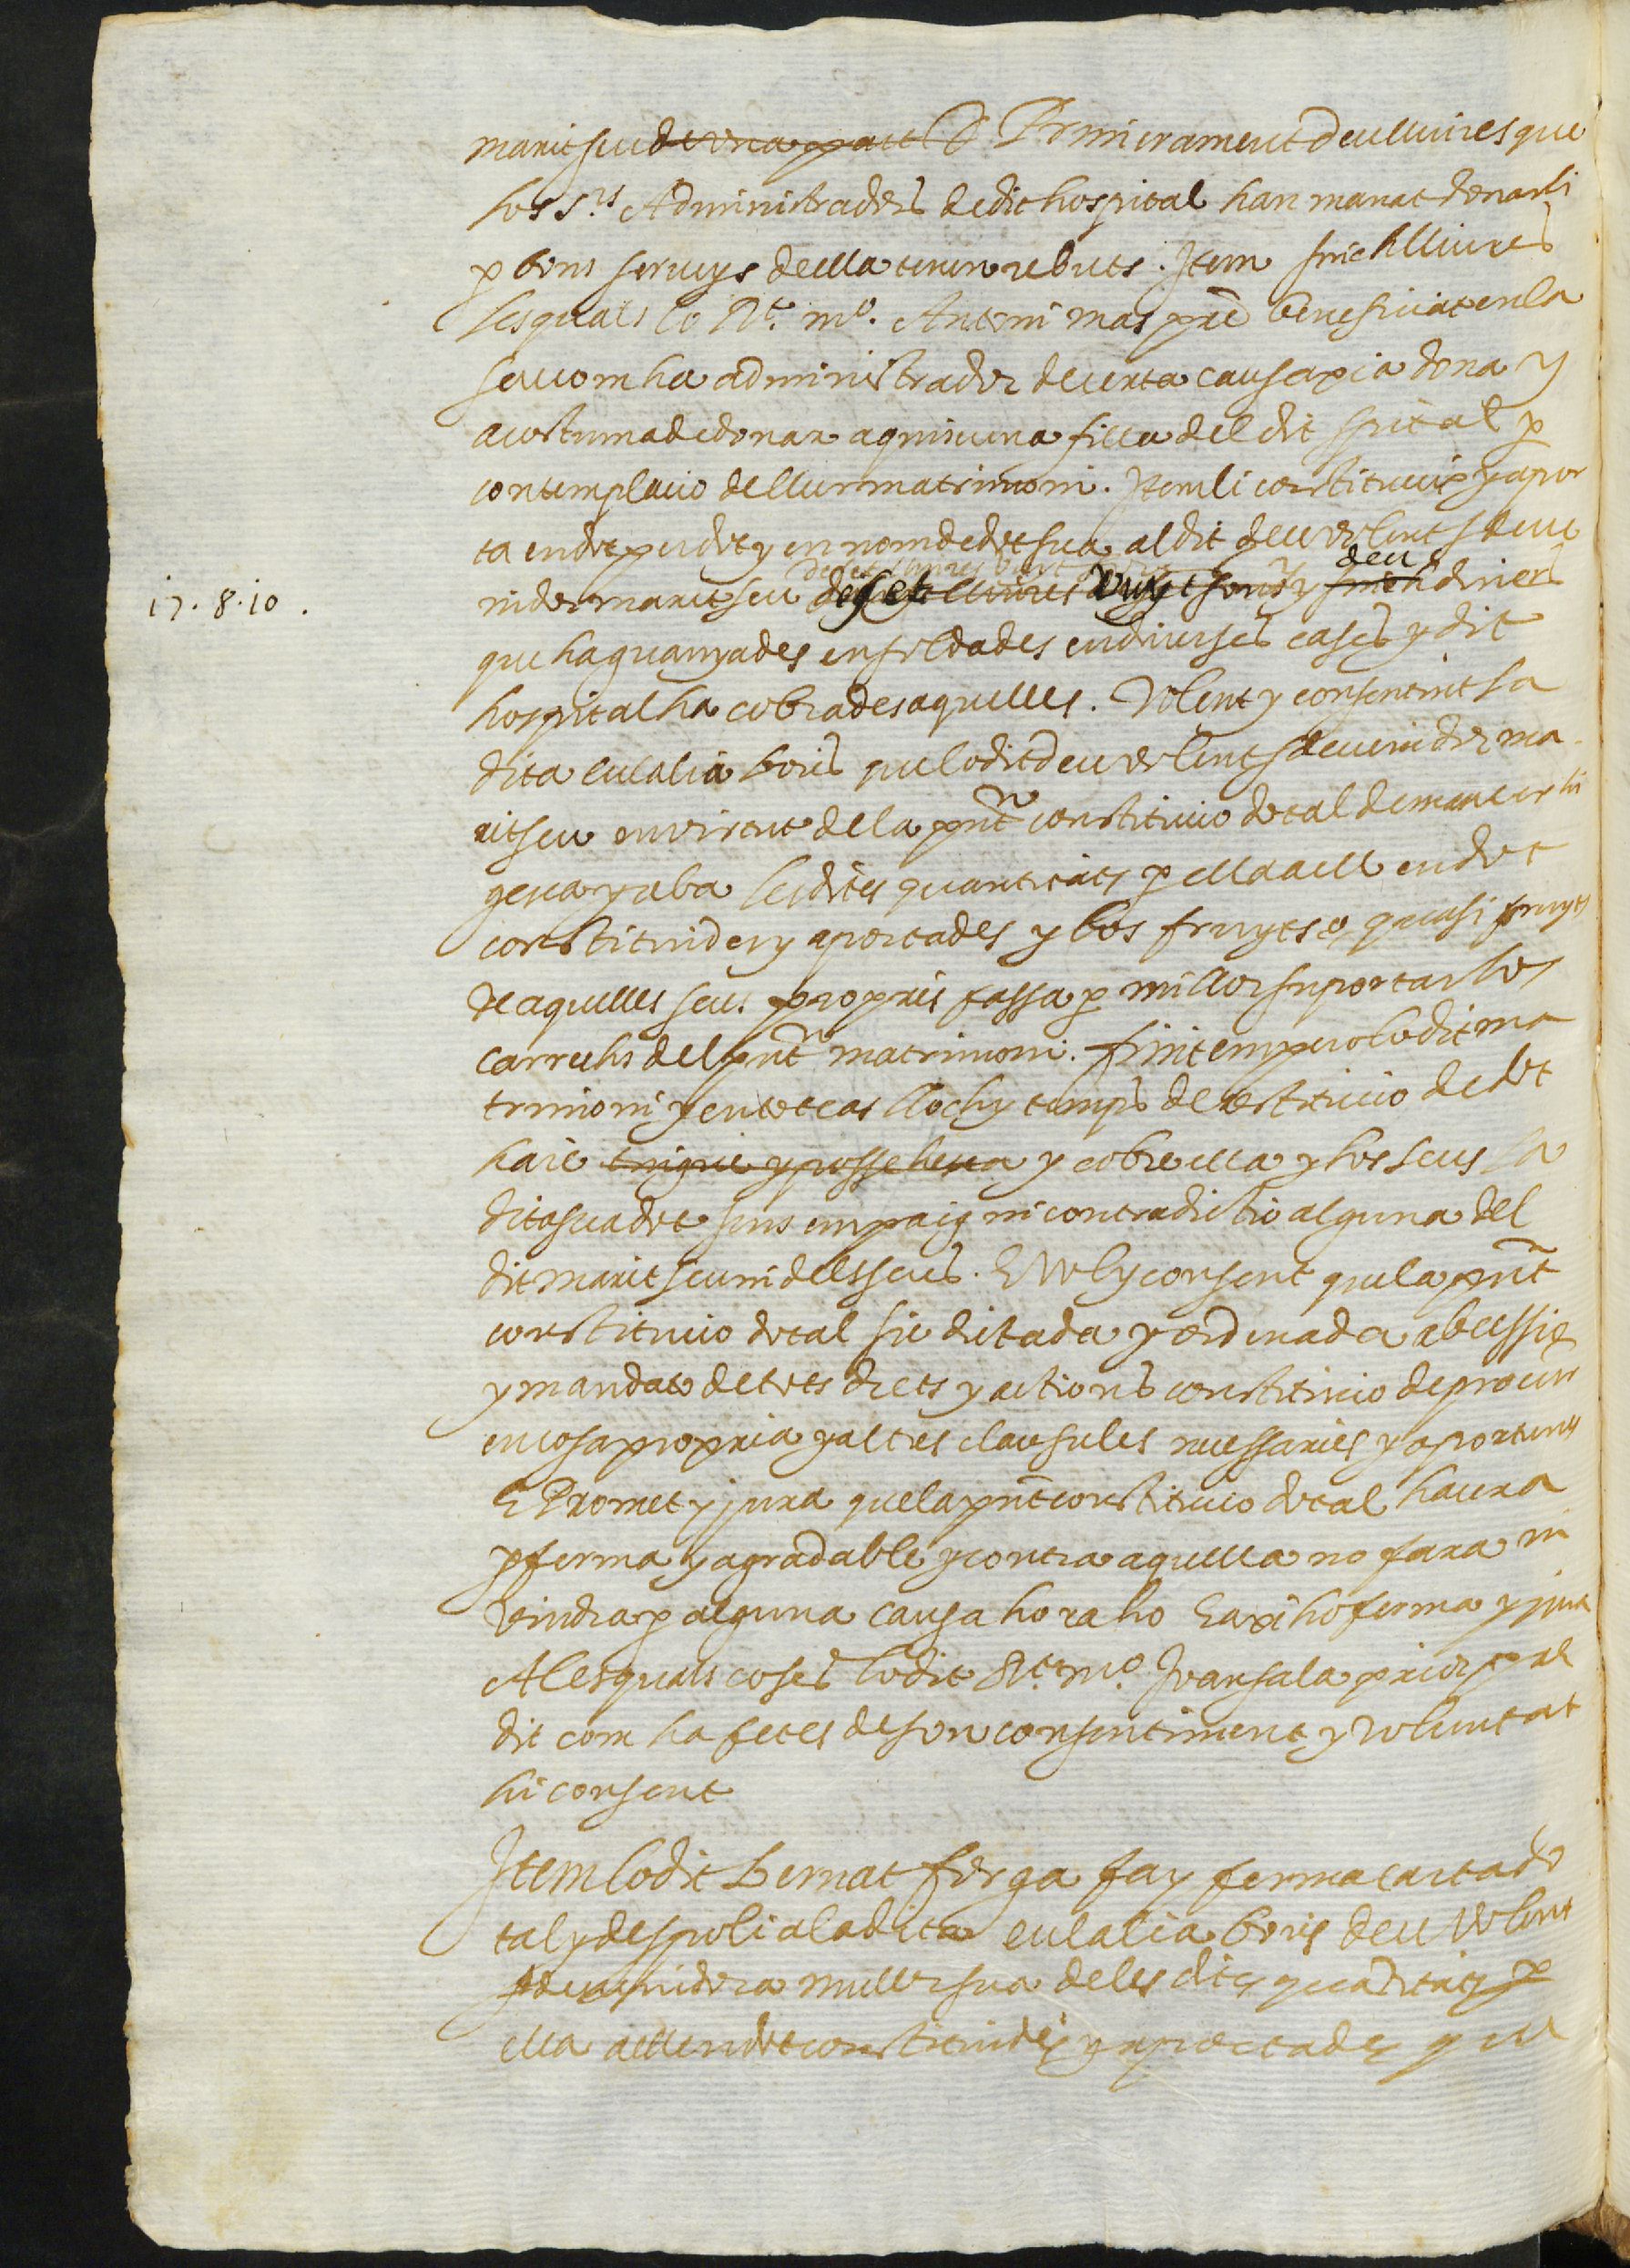 marit seu de una part E Primerament deu lliures que
los S.rs Administradors de dit hospital han manat donarli
p bons serveys de ella tenen rebuts. Item sinch lliures
les quals lo Rt. mº. Antoni mas pre beneficiat en la
seu com ha administrador de certa causa pia dona y
acostuma de donar a quiscuna filla del dit spital p
contemplacio de llur matrimoni. Item li constitueix y apor
ta en dot per dot y en nom de dot sua al dit deu volent sdeve
nidor marit seu deset lliures vuyt sous y sinch deu diners
17 . 8 . 10 .
que ha guanyades en soldades en diverses cases y dit
hospital ha cobrades aquelles. Volent y consentint la
dita eulalia boris que lo dit deu volent sdevenidor ma
rit seu en virtut de la pnt constitucio dotal demane exhi
gesca y reba les dites quantitats p ella a ell en dot
constituides y aportades y los fruyts o quasi fruyts
de aquelles seus propris fassa p millor suportar los
carrechs del pnt matrimoni. finit empero lo dit ma
trimoni y en tot cas lloch y temps de restitucio de dot
haie tingue y possehesca y cobre ella y los seus la
dita sua dot sens empaig ni contradictio alguna del
dit marit seu ni dels seus. E vol y consent que la pnt
constitucio dotal sie dictada y ordenada ab cessio
y mandato de tots drets y actions constitucio de procur
en cosa propria y altres clausules necessaries y oportunes
E Promet y jura que la pnt constitucio dotal haura
p ferma y agradable y contra aquella no fara ni
vindra p alguna causa ho raho E axi ho ferma y jura
A les quals coses lo dit Rt. mº. Joan sala prior pral
dit com ha fetes de son consentiment y voluntat
hi consent
Item lo dit Bernat forga fa y ferma carta do
tal y de spoli a la dita eulalia boris deu volent
sdevenidora muller sua de les dites quantitats p
ella a ell en dot constituides y aportades y ell